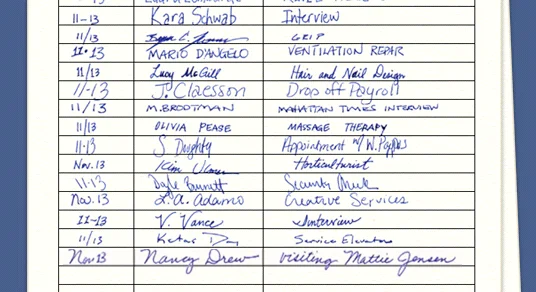 11-13 Kara Schwab Interview
11/13 GRIP
11-13 MARIO D'ANGELO VENTILATION REPAR
11/13 Lucy McGill Hair and Nail Design
11-13 J. Claesson Drop off Payroll
11/13 M. BROOTMAN MAHATTAN TIMES INTERVIEW
11/13 OLIVIA PEASE MASSAGE THERAPY
11-13 S Doughty Appointment w/ W. Pappas
Nov. 13 Kim Horticulturist
11-13 Dayle Burnett Security
Nov. 13 L.A. Adamo Creative Services
11-13 V. Vance Interview
11/13 Service Elevators
Nov 13 Nancy Drew visiting Mattie Jensen